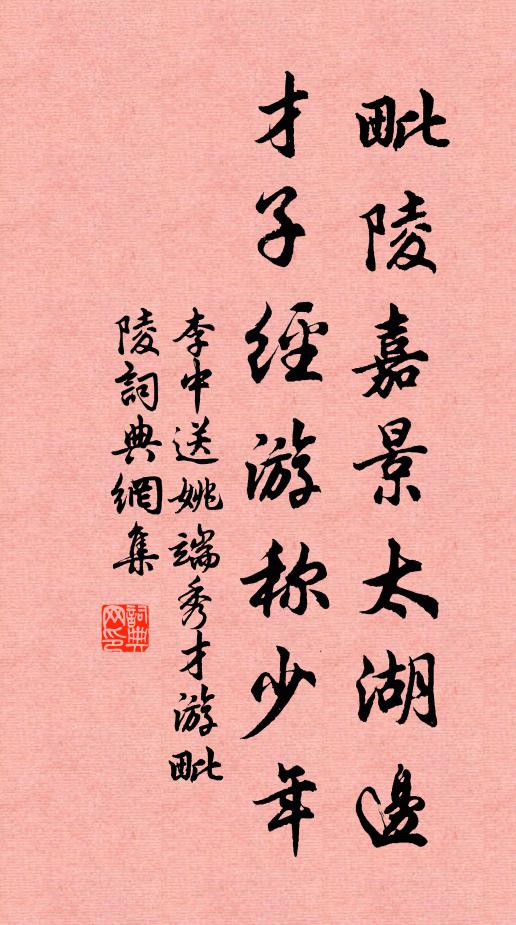 毗陵嘉景太湖邊
才子經游称少年
李中送姚端秀才游毗
陵詞典網集
詞典
网印